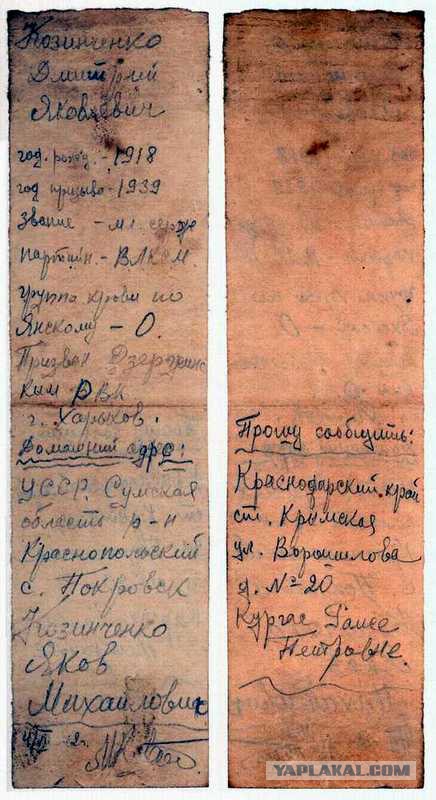 Козинченко
Дмитрий
Яковлевич
год. рожд. - 1918
год призыва - 1939
Звание - мл. серж
партийн. - ВЛКСМ
группа крови по
Янскому - О
Призван Дзержинс
ким РВК
г. Харьков.
Домашний адрес:
УССР. Сумская
область р-н
Краснопольский
с. Покровск
Козинченко
Яков
Михайлович
Прошу сообщить:
Краснодарский край
ст. Крымская
ул. Ворошилова
д. № 20
Кургас
Петровне.
YAPLAKAL.COM